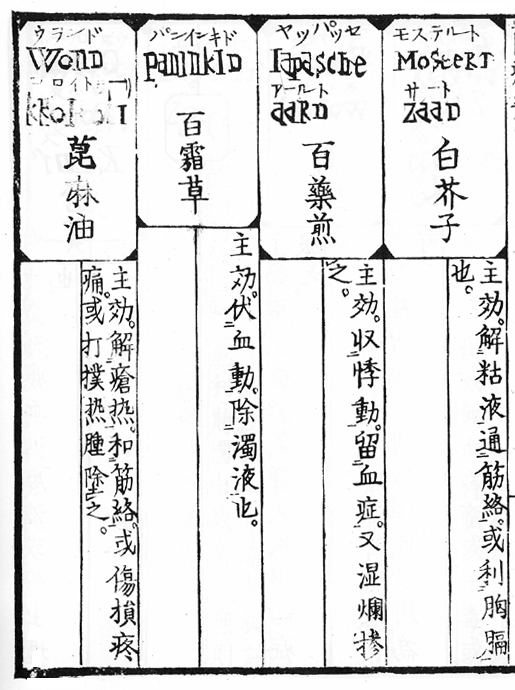 モステルト
MoSteRT
サート
ZaaD
白芥子
主効。解粘液通筋絡。或利胸膈
也。
ヤッパッセ
Iapasche
アールト
aaRD
百藥煎
主効。収悸動。留血症。又湿爛摻
之。
パンインキド
panInkID
百霜草
主効。伏血動。除濁液也。
ウランド
WonD
萞麻油
主効。解瘡热。和筋絡。或傷損疼
痛。或打撲热腫塗之。